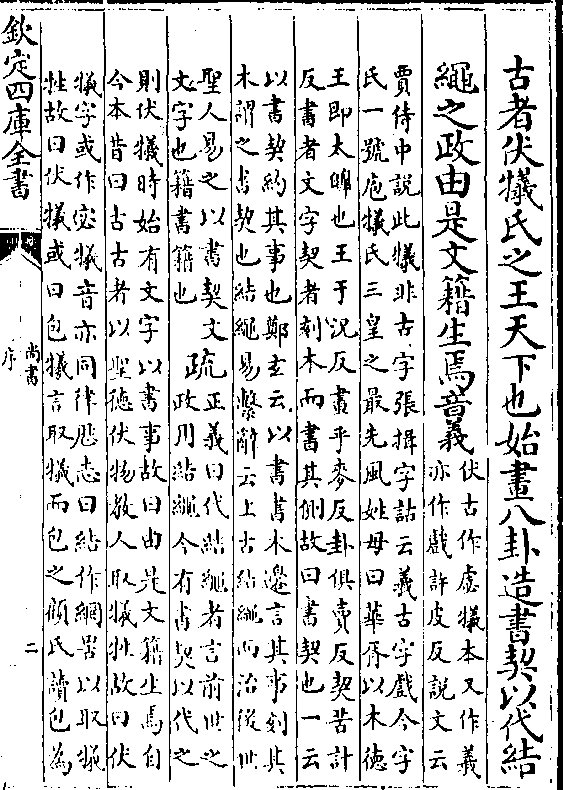 古者伏犧氏之王天下也始畫八卦造書契以代結
繩之政由是文籍生焉音義
伏古作虙犧本又作羲
亦作戲許皮反説文云
賈侍中説此犧非古字張揖字詁云羲古字戲今字
氏一號庖犧氏三皇之最先風姓母曰華胥以木徳
王即太皥也王于况反畫乎麥反卦俱賣反契苦計
反書者文字契者刻木而書其側故曰書契也一云
以書契約其事也鄭玄云以書書木邊言其事刻其
木謂之書契也結繩易繫辭云上古結繩而治後世
聖人易之以書契文
文字也籍書籍也
疏
正義曰代結繩者言前世之
政用結繩今有書契以代之
則伏犧時始有文字以書事故曰由是文籍生焉自
今本昔曰古古者以聖徳伏物教人取犧牲故曰伏
犧字或作宓犧音亦同律厯志曰結作網罟以取犧
牲故曰伏犧或曰包犧言取犧而包之顧氏讀包為
欽定四庫全書
尚書
序
二